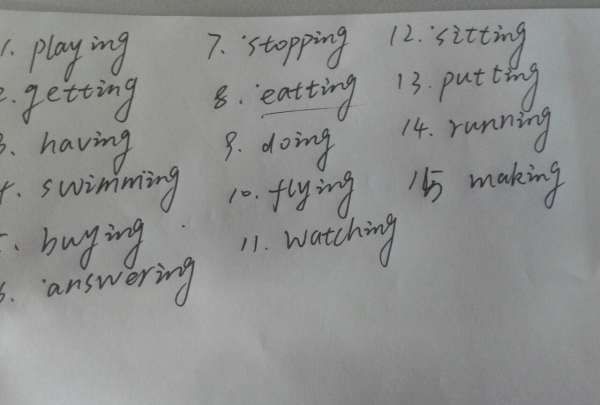 1. playing
2. getting
3. having
4. swimming
5. buying
6. answering
7. stopping
8. eatting
9. doing
10. flying
11. watching
12. sitting
13. putting
14. running
15 making